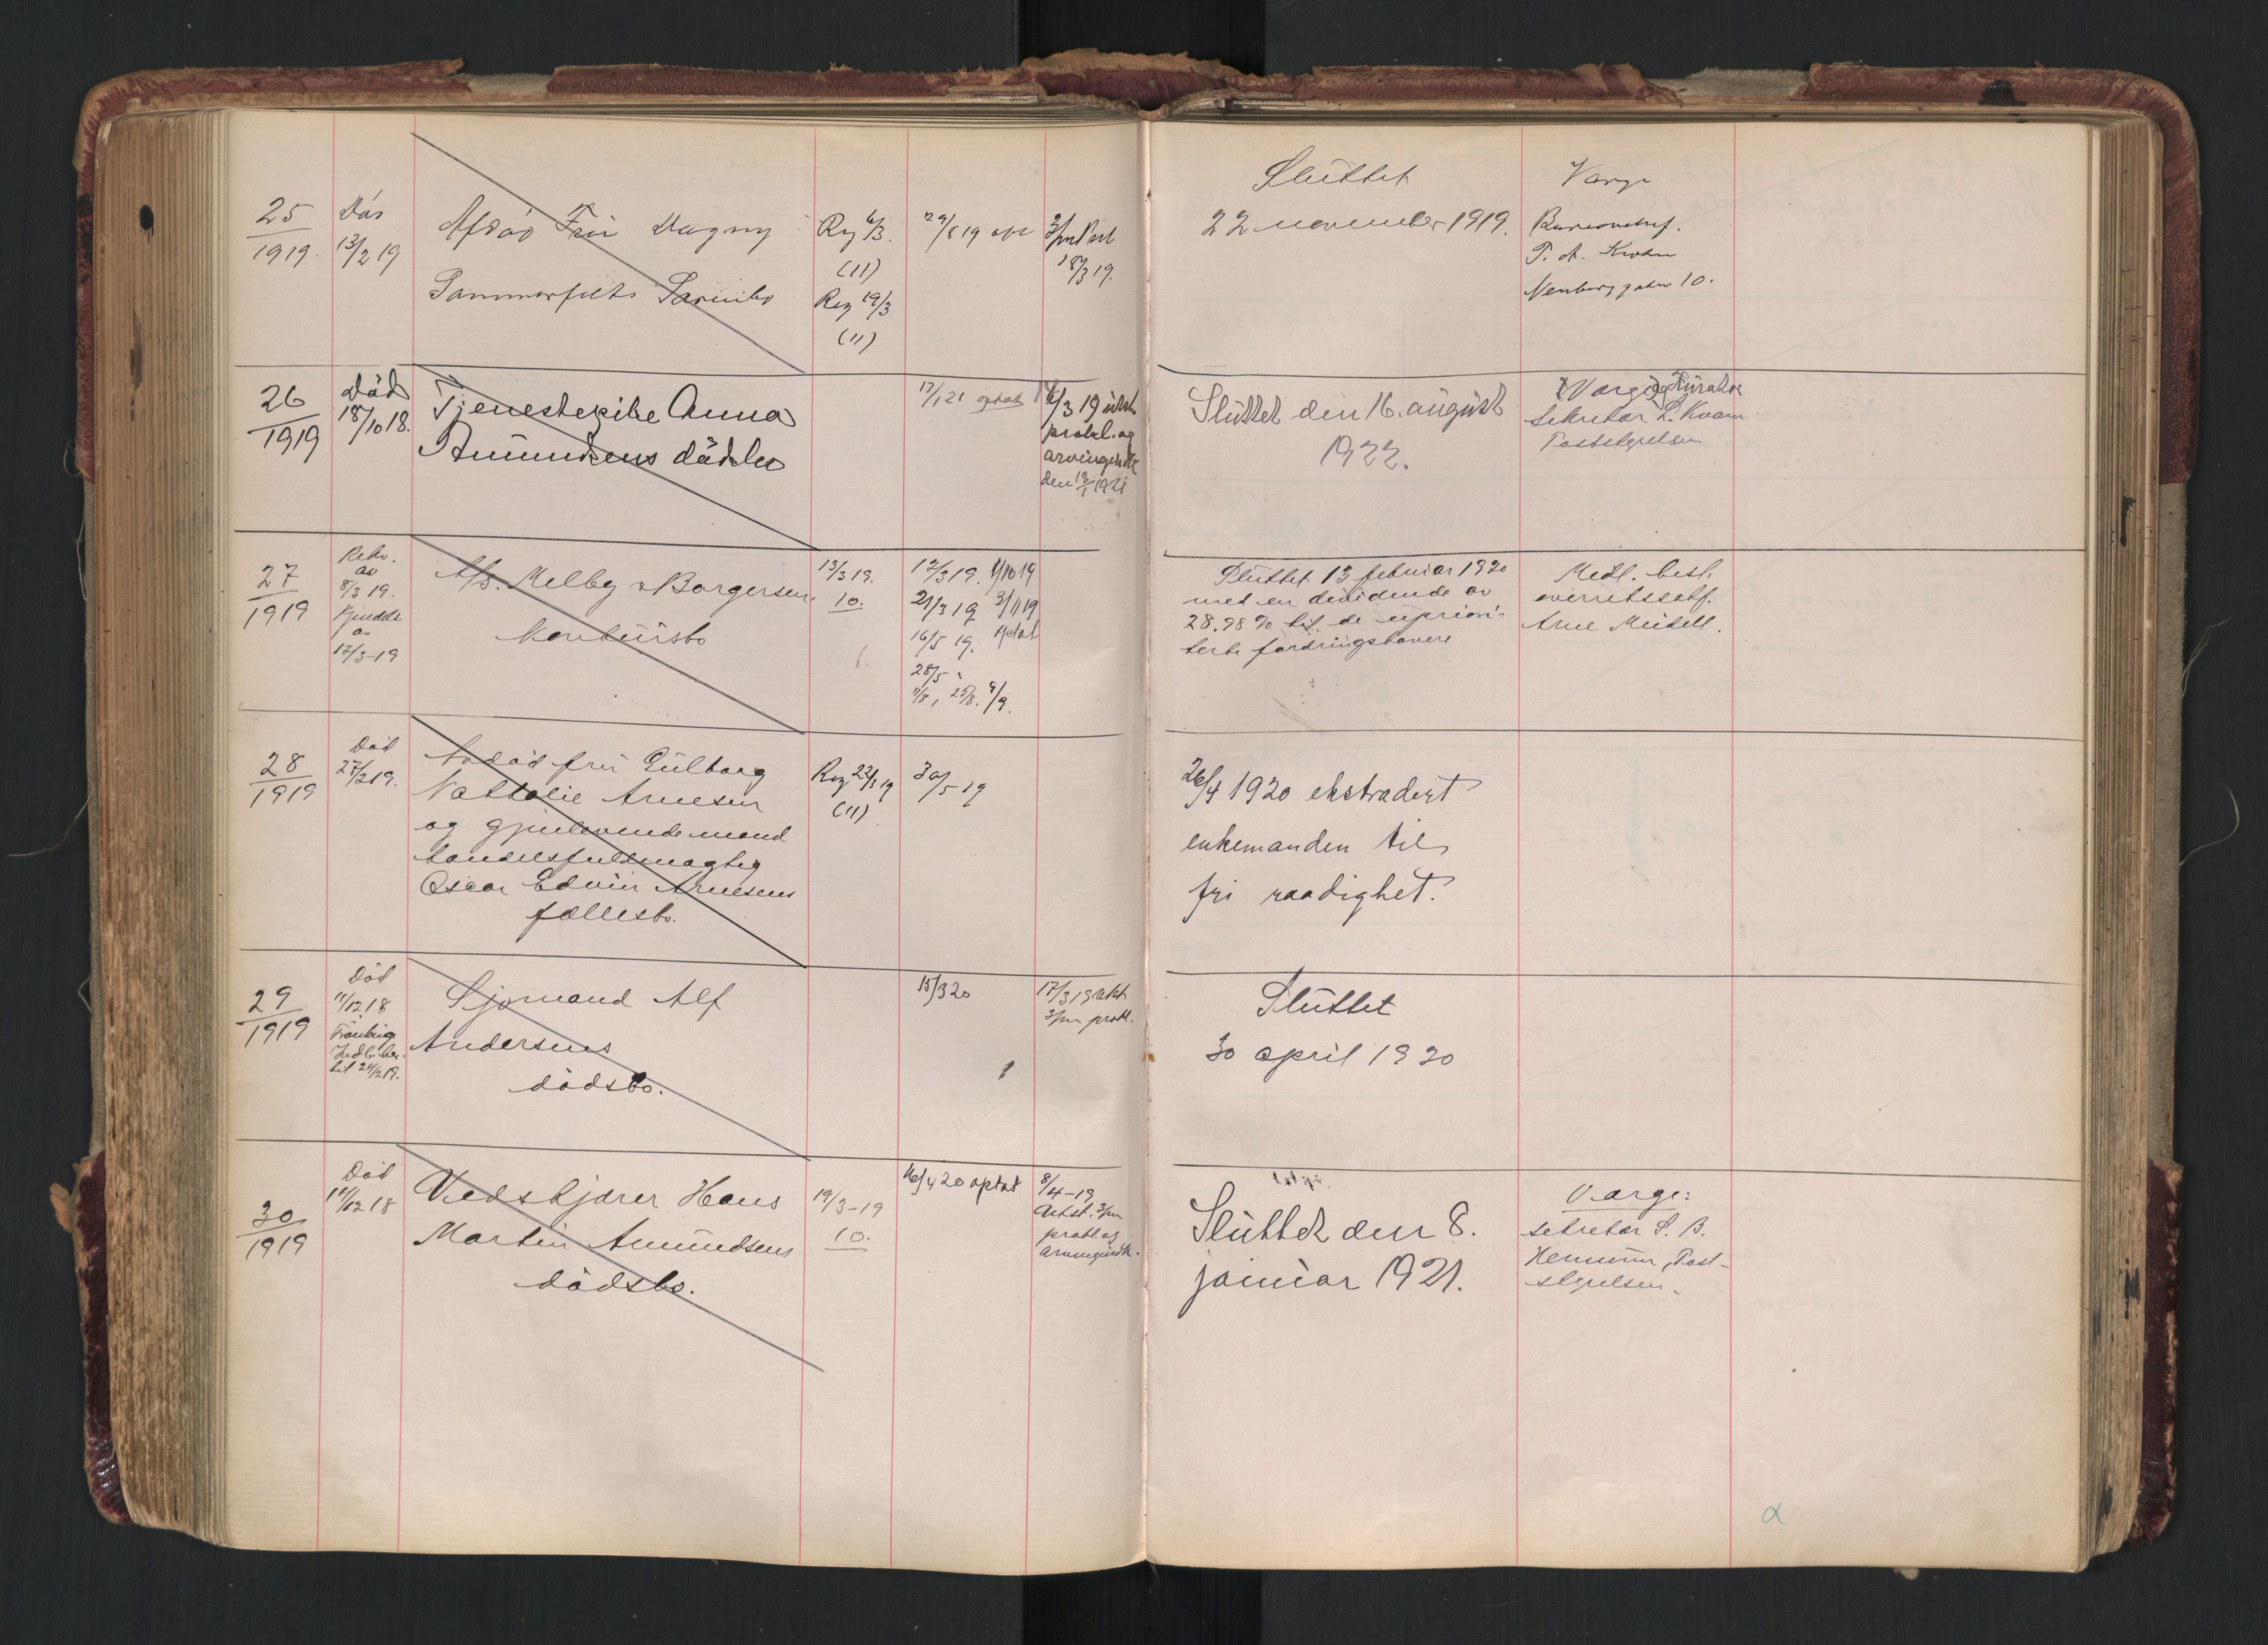 25
1919.
Død
13/2 19
Afdød Fru Dagny
Sammerfelts Særbo
Reg 6/3.
(11)
Reg 19/3
(11)
29/8 19
18/3 19.
Sluttet
22 november 1919.
Værge
Bureauchef.
T. A.
10.
26
1919
Død
18/10 18.
Tjenestepike Anna
Amundsens dødsbo
17/1 21 optat
6/3 19
prokl. og
arvingindk
den 19/1 1921
Sluttet den 16. august
1922.
Værge og Kurator
sekretær L. Kvam
Poststyrelsen
27
1919
Rekv.
av
8/3 19.
Kjendelse
av
12/3-19
A/S. Melby & Borgersen
konkursbo
13/3 19.
10.
12/3 19. 1/10 19
21/3 19 3/11 19
16/5 19. optat
28/5 "
11/8, 25/8. 9/9.
Sluttet 13 februar 1920
med en dividende av
28.98 % til de upriori-
terte fordringshavere
Medl. best.
overretssakf.
Arne Meidell.
28
1919
Død
27/2 19.
Avdød fru Gulborg
Nathalie Arnesen
og gjenlevende mand
handelsfuldmægtig
Oscar Edvin Arnesens
fællesbo.
Reg 22/3 19
(11)
30/5 19
26/4 1920 ekstradert
enkemanden til
fri raadighet.
29
1919
Død
11/12 18
til 24/2 19.
Sjømand Alf
Andersens
dødsbo.
15/3 20
17/3 19 utst
3/m prokl.
Sluttet
30 april 1920
30
1919
Død
14/12 18
Vedskjærer Hans
Martin Amundsens
dødsbo.
19/3-19
10.
16/4 20 optat
8/4-19
Utst. 3/m
prokl. og
arvingindk.
Sluttet den 8.
januar 1921.
Værge:
sekretær S. B.
Hennum, Post-
styrelsen.